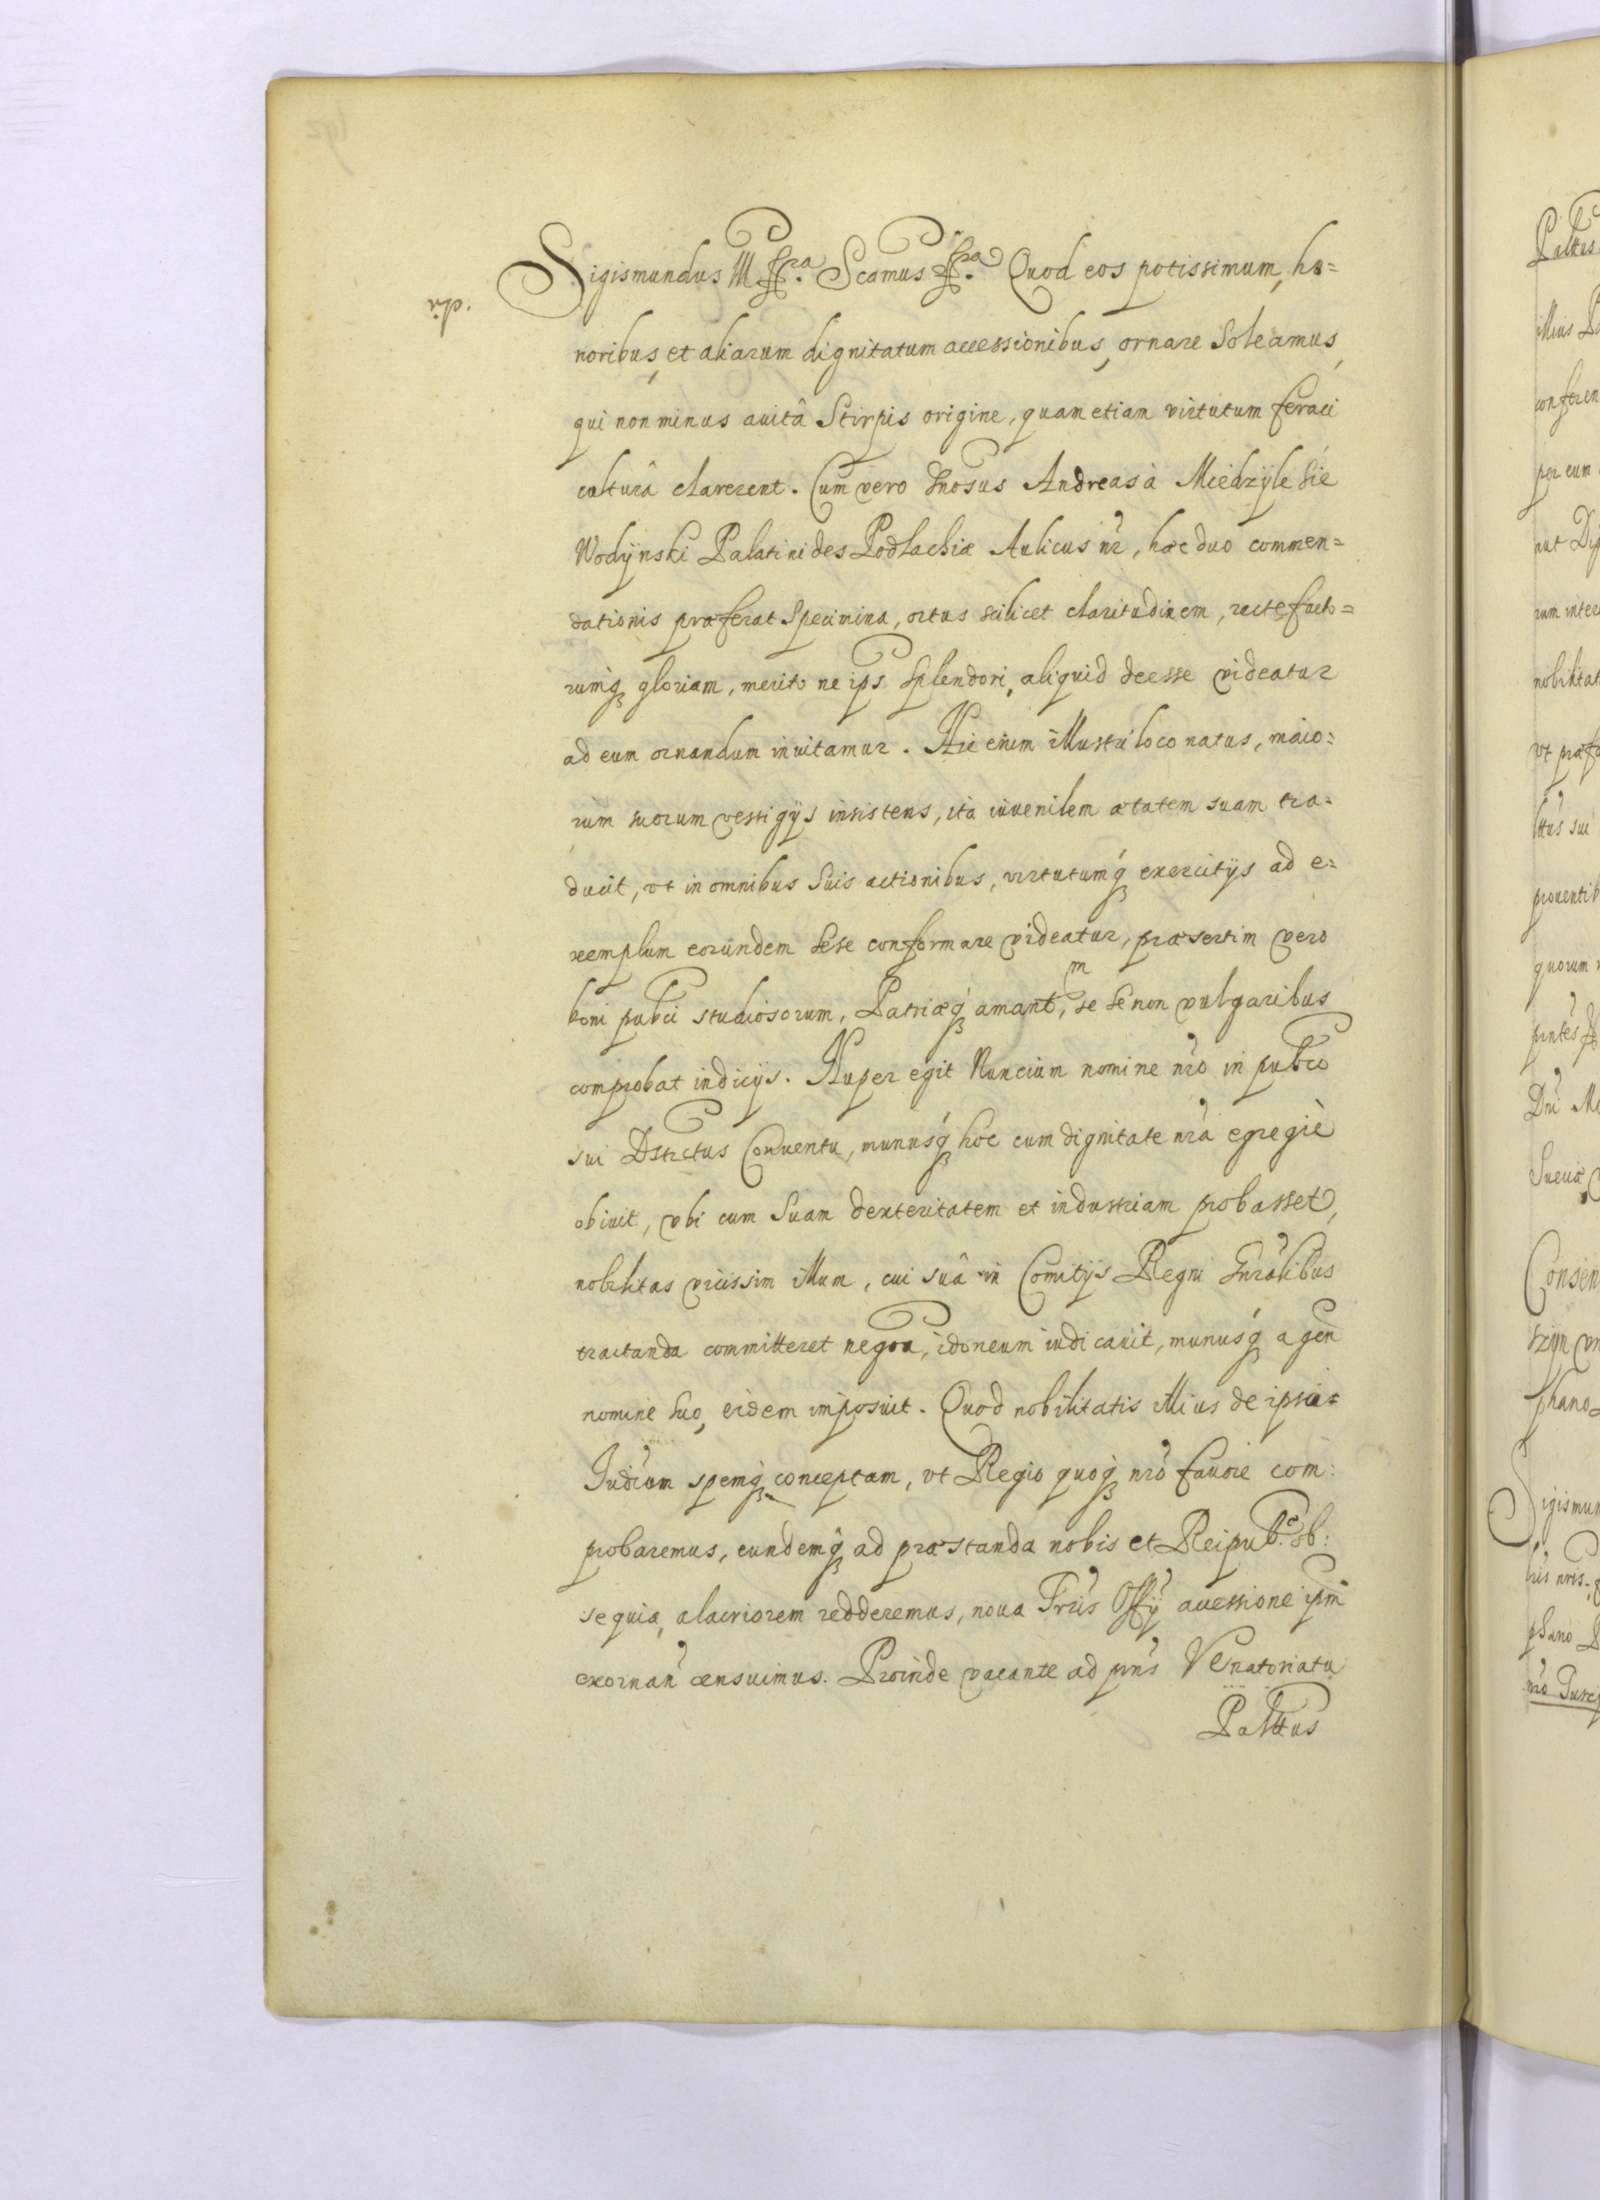 Sigismundus III &c̃ra. Scamus &c̃ra. Quod eos potissimum, ho=
noribus, et aliarum dignitatum accessionibus, ornare Soleamus,
qui non minus auitâ Stirpis origine, quam etiam virtutum feraci
culturâ clarerent. Cum vero Gnosus Andreas à Miedzÿlesie
Wodÿnski Palatinides Podlachiæ Aulicus nr̃, hæc duo commen=
dationis præferat Specimina, ortus scilicet claritudinem, recte facto=
rumq; gloriam, merito ne ips Splendori, aliquid deesse videatur
ad eum ornandum inuitamur. Hic enim illustri loco natus, maio=
rum suorum vestigÿs insistens, ita iuuenilem ætatem suam tra=
ducit, vt in omnibus Suis actionibus, virtutumq; exercitÿs ad e=
xemplum eorundem sese conformare videatur, præsertim vero
boni pubci studiosorum, Patriæq; amant, se se non vulgaribus
comprobat indicÿs. Nuper egit Nuncium nomine nr̃o in pubco
sui Dstrctus Conuentu, munusq; hoc cum dignitate nr̃a egregiè
obiuit, vbi cum Suam dexteritatem et industriam probasset,
nobilitas vicissim illum, cui suâ in Comitÿs Regni Gnr̃alibus
tractanda committeret negoa, idoneum iudicauit, munusq; agen̄
nomine suo, eidem imposuit. Quod nobilitatis illius de ipsius
Iudicium spemq; conceptam, vt Regio quoq; nr̃o fauore com=
probaremus, eundemq; ad præstanda nobis et Reipubc̃. ob=
sequia, alacriorem redderemus, noua Trr̃is Offÿ accessione ipm̃
exornan̄ censuimus. Proinde vacante ad pn̄s Venatoriatu
Palttus